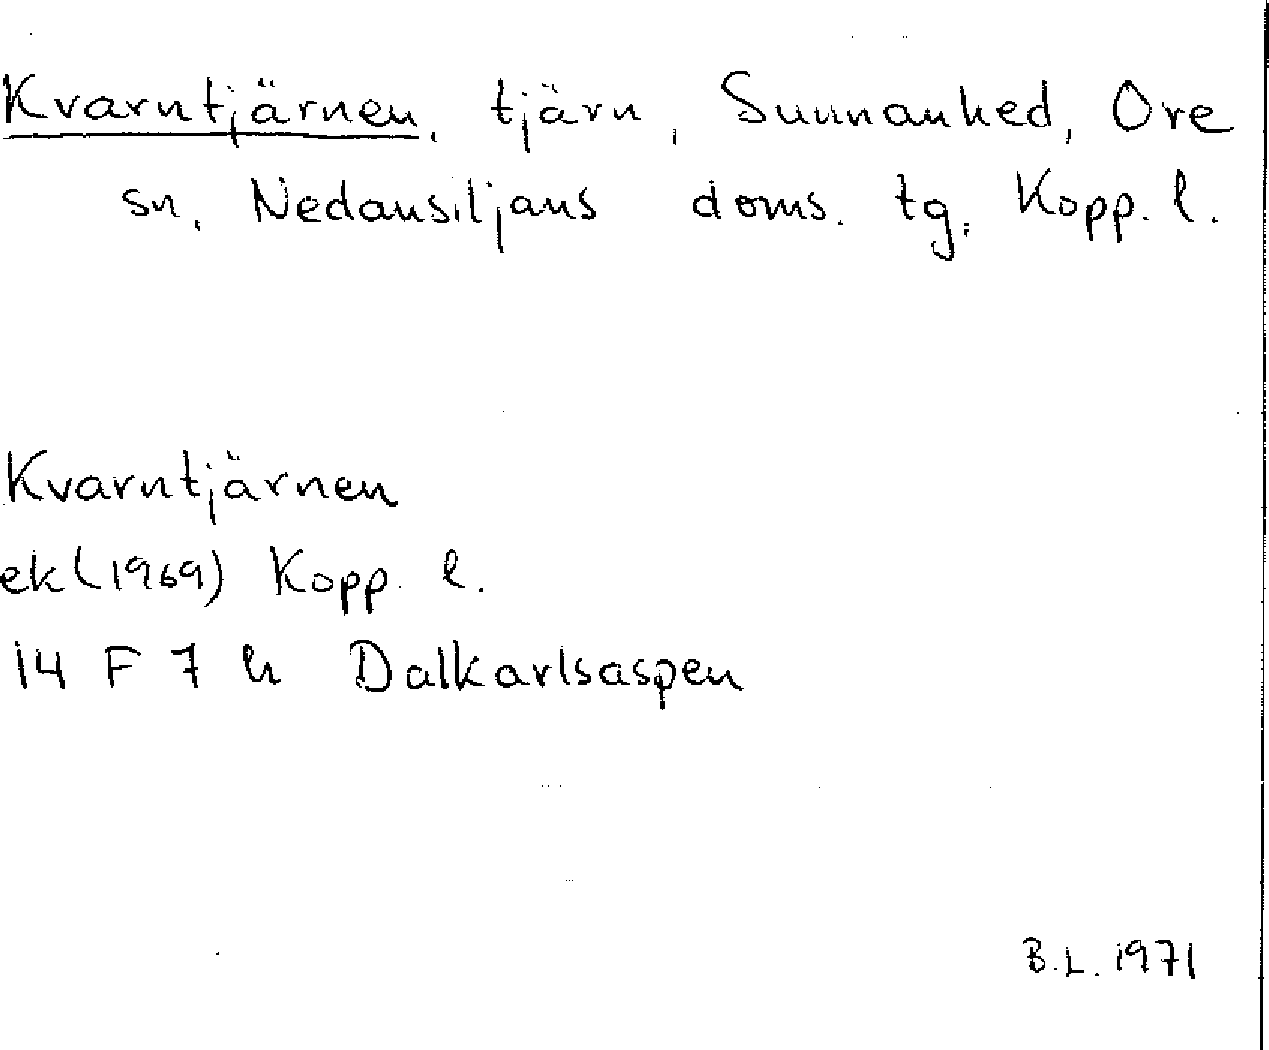 Kvarntjärnen, tjärn, Sunnanhed, Ore
sn, Nedansiljans doms. tg, Kopp. l.
Kvarntjärnen
ek (1969) Kopp. l.
14 F 7 h Dalkarlsaspen
B.L. 1971